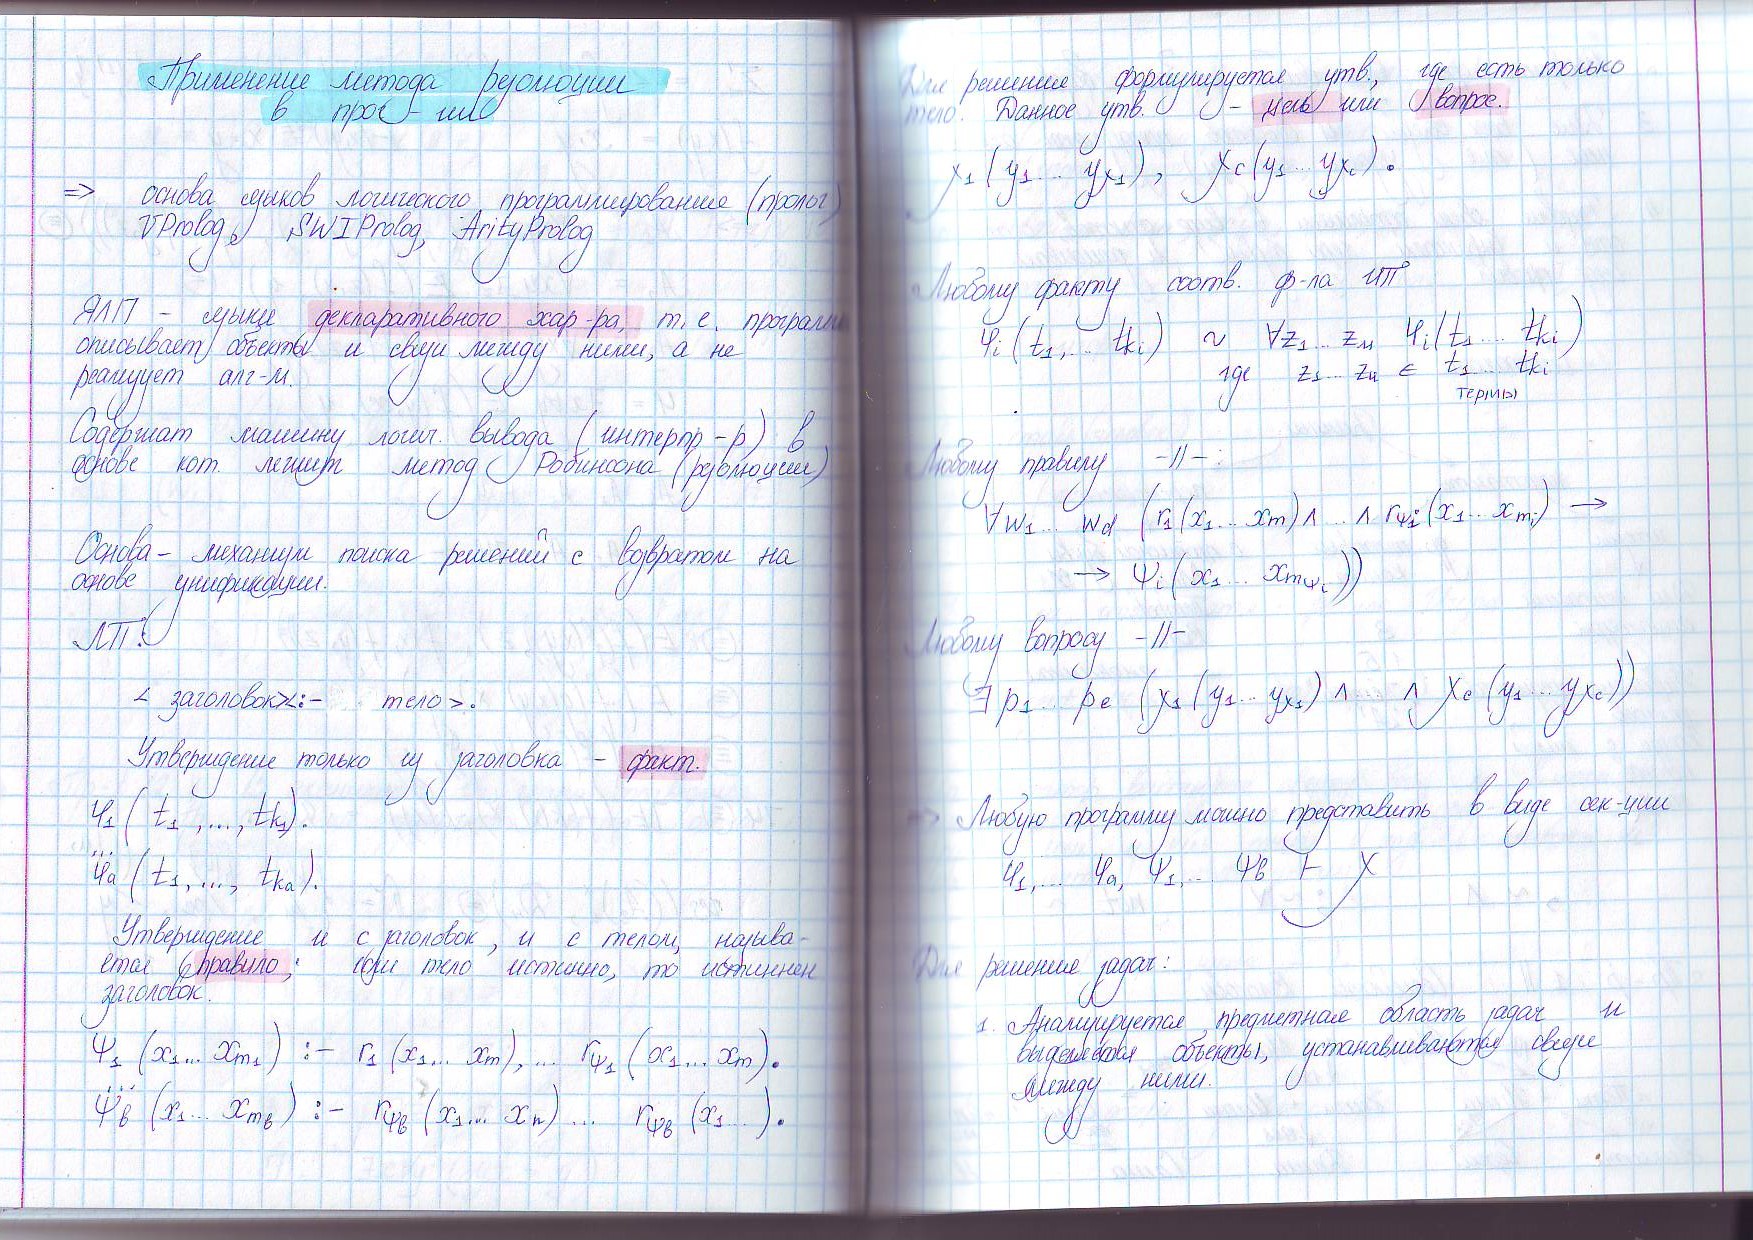 Применение метода резолюции
в прог-ии
=> основа языков логического программирования (пролог)
VProlog, SWIProlog, ArityProlog
ЯЛП - языки декларативного хар-ра, т.е. программа
описывает объекты и связи между ними, а не
реализует алг-м.
Содержат машину логич. вывода (интерпр-р) в
основе кот. лежит метод Робинсона (резолюции)
Основа - механизм поиска решений с возвратом на
основе унификации.
ЛП:
< заголовок><:- тело>.
Утверждение только из заголовка - факт.
φ₁ ( t₁ ,..., tk₁).
...
φa ( t₁,..., tka).
Утверждение и с заголовок, и с телом, называ-
ется правило; если тело истинно, то истинен
заголовок.
Ψ₁ (x₁... xm₁) :- r₁ (x₁... xm),... rψ₁ (x₁...xm).
...
Ψb (x₁... xmb) :- rψb (x₁... xn) ... rψb (x₁...).
Для решения формулируется утв., где есть только
тело. Данное утв. - цель или вопрос.
χ₁ ( y₁... yχ₁), χc(y₁... yχc).
Любому факту соотв. ф-ла ИП
φi ( t₁,... tki) ~ ∀z₁... zn φi(t₁... tki)
где z₁... zn ∈ t₁... tki
термы
Любому правилу -//- :
∀w₁... wd (r₁(x₁... xm) ∧ ... ∧ rψi (x₁... xmi) →
→ ψi (x₁... xmψi))
Любому вопросу -//-
∃ p₁... pe (χ₁ (y₁... yχ₁) ∧ ... ∧ χc (y₁... yχc))
=> Любую программу можно представить в виде сек-ции
φ₁,... φa, ψ₁,... ψb ⊢ χ
Для решения задач:
1. Анализируется предметная область задач и
выделяются объекты, устанавливаются связи
между ними.